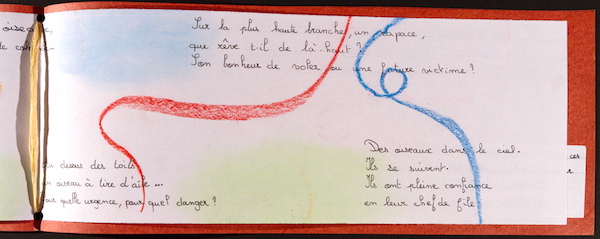 oiseau,
Sur la plus haute branche, un rapace,
que rêve t-il de là-haut ?
Son bonheur de voler ou une future victime ?
Au dessus des toits
un oiseau à tire d'aile ...
pour quelle urgence, pour quel danger ?
Des oiseaux dans le ciel.
Ils se suivent.
Ils ont pleine confiance
en leur chef de file